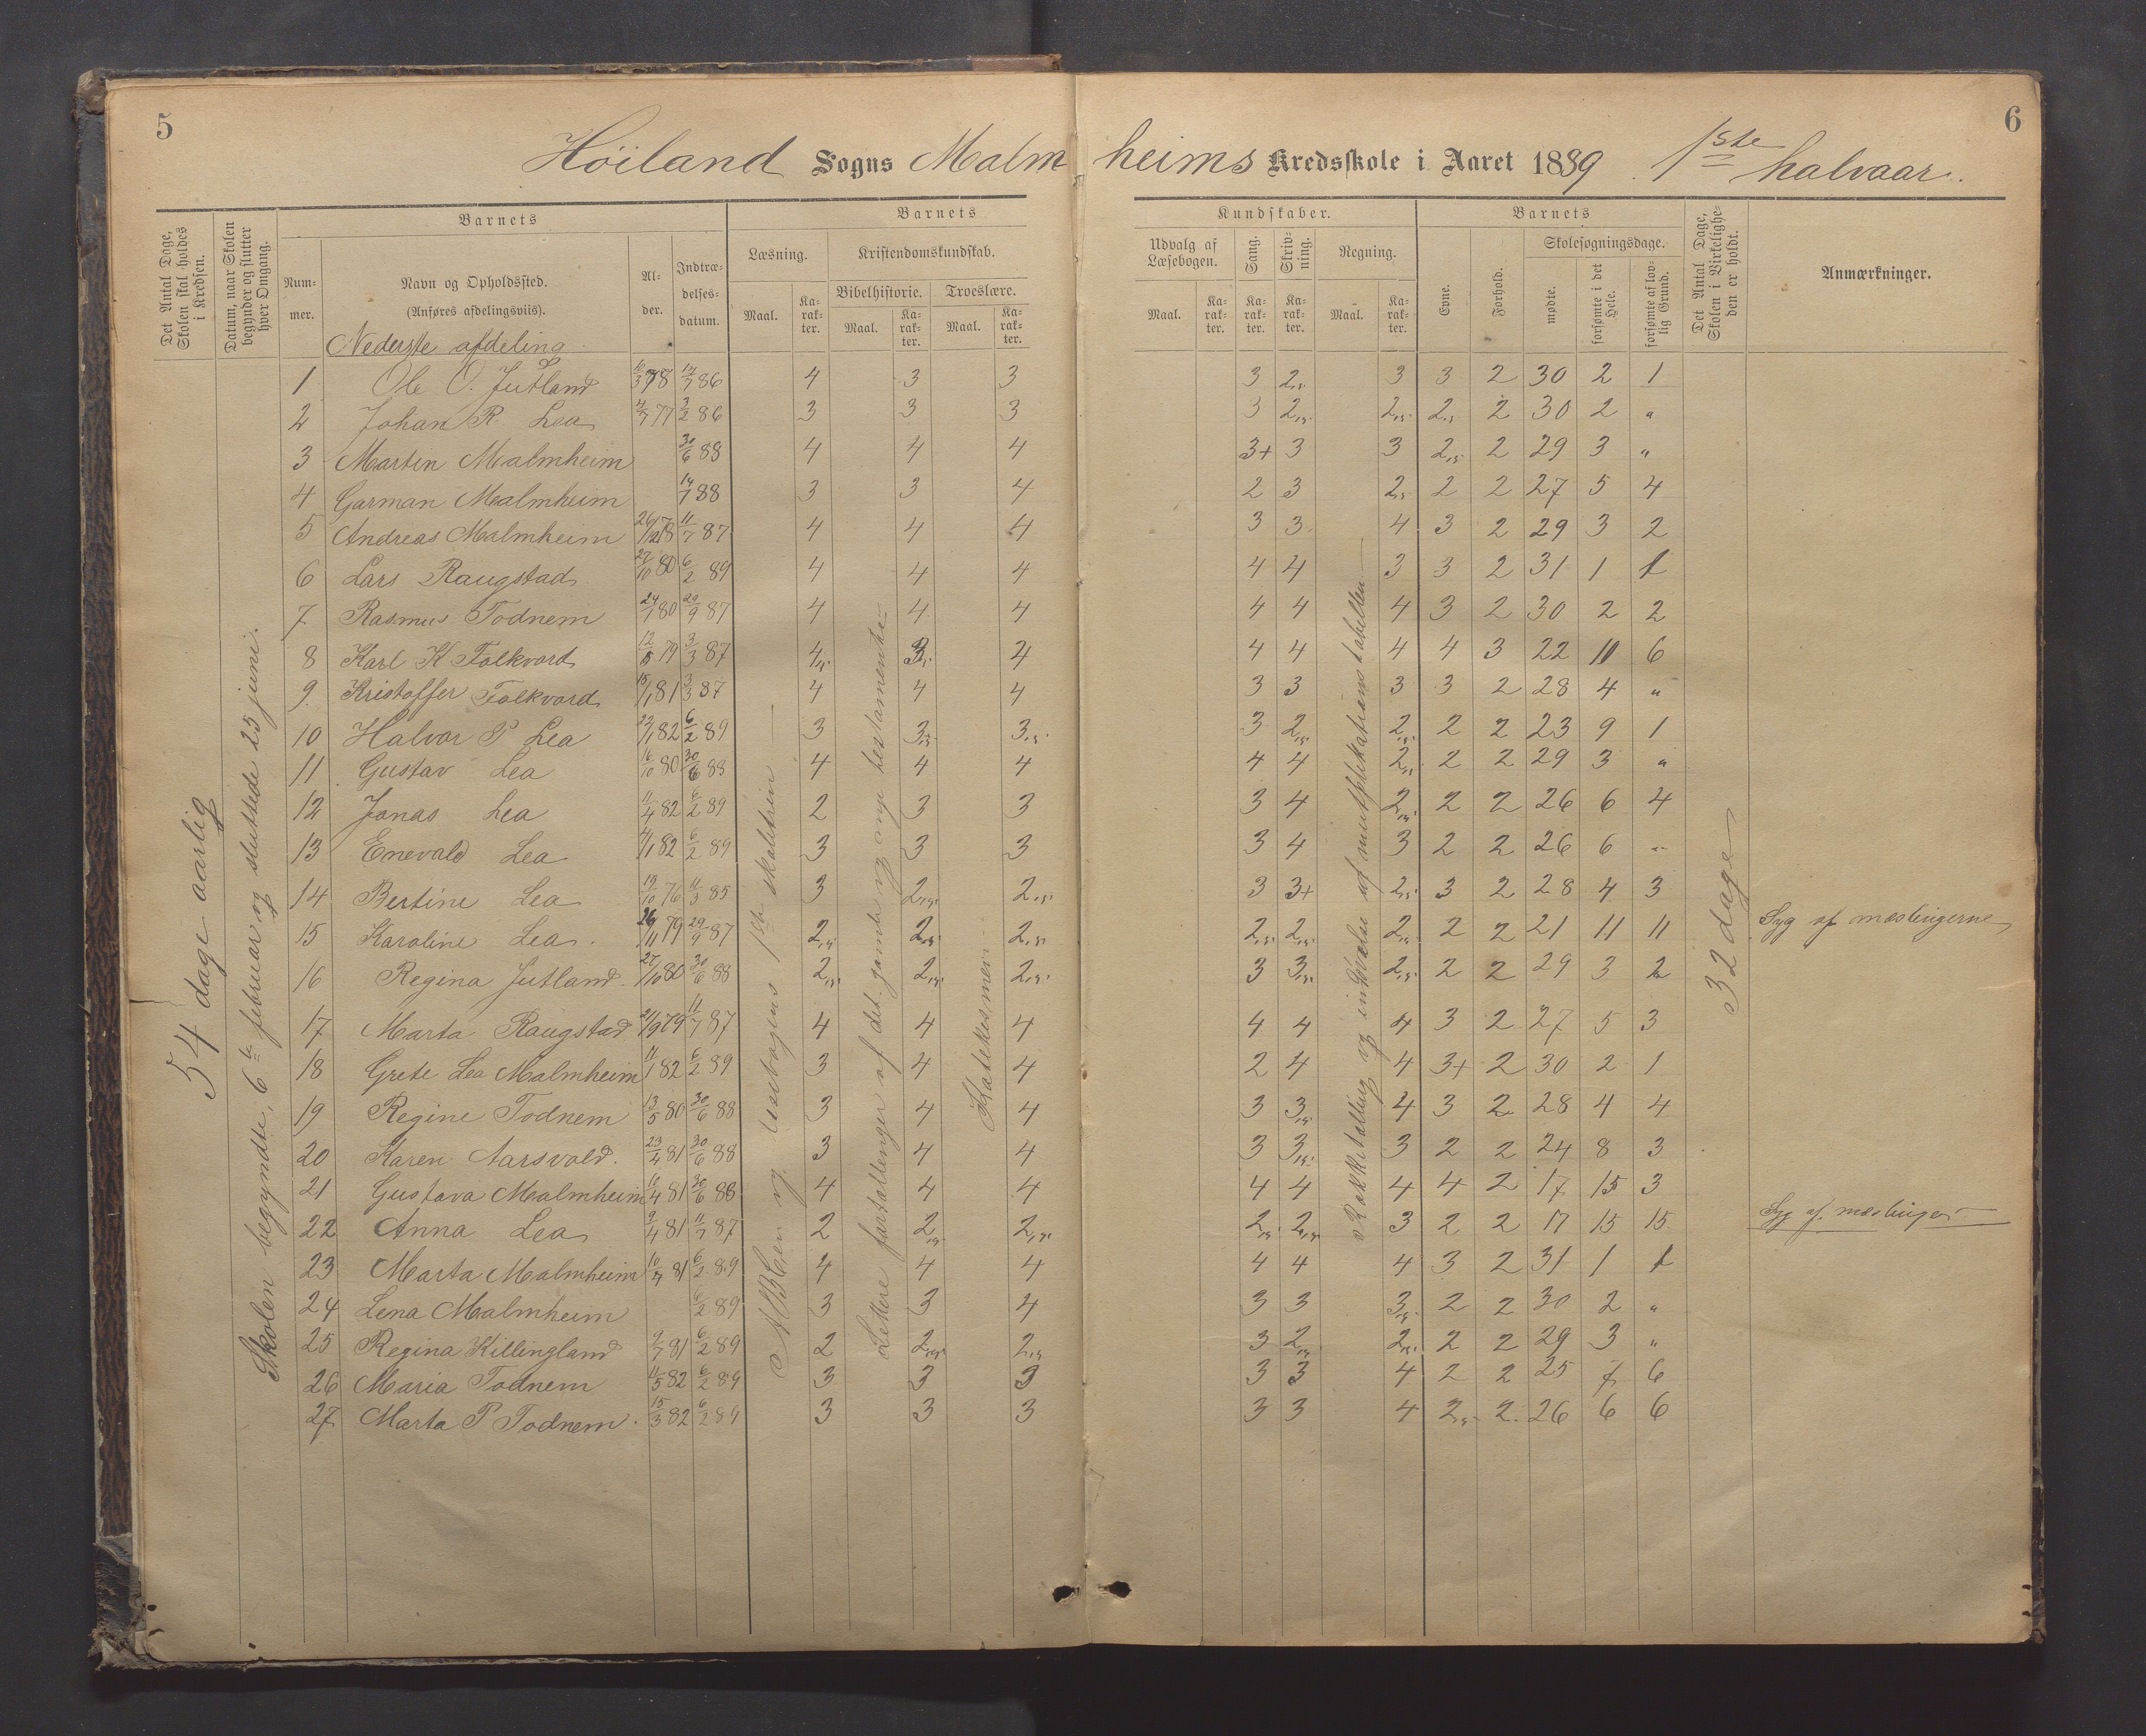 5
6
Høiland Sogns Malmheims Kredsskole i Aaret 1889. 1ste halvaar.
Det Antal Dage, Skolen skal holdes i Kredsen.
Datum, naar Skolen begynder og slutter hver Omgang.
Barnets
Nummer.
Navn og Opholdssted. (Anføres afdelingsviis).
Alder.
Indtrædelsesdatum.
Barnets Kundskaber.
Læsning.
Maal.
Karakter.
Kristendomskundskab.
Bibelhistorie.
Maal.
Karakter.
Troeslære.
Maal.
Karakter.
Udvalg af Læsebogen.
Maal.
Karakter.
Sang.
Karakter.
Skrivning.
Karakter.
Regning.
Maal.
Karakter.
Barnets
Evne.
Forhold.
Skolesøgningsdage.
mødte.
forsømte i det Hele.
forsømte af lovlig Grund.
Det Antal Dage, Skolen i Virkeligheden er holdt.
Anmærkninger.
54 dage aarlig
Skolen begyndte, 6te februar og sluttede 25 juni.
Nederste afdeling.
ABCen og læsebogens 1ste skoletrin
Lettere fortællinger af det gamle og nye testamente
Katekismen
Rækketælling og indøvelse af multiplikationstabellen
32 dage
1 Ole O. Jutland 10/3 78 14/7 86 4 3 3 3 2,5. 3 3 2 30 2 1
2 Johan R. Lea 4/7 77 3/2 86 3 3 3 3 2,5. 2,5. 2,5 2 30 2 "
3 Martin Malmheim 30/6 88 4 4 4 3+ 3 3 2,5. 2 29 3 "
4 Garman Malmheim 14/7 88 3 3 4 2 3 2,5 2 2 27 5 4
5 Andreas Malmheim 26/12 78 11/7 87 4 4 4 3 3 4 3 2 29 3 2
6 Lars Raugstad 27/10 80 6/2 89 4 4 4 4 4 3 3 2 31 1 1
7 Rasmus Todnem 24/1 80 29/9 87 4 4 4 4 4 4 3 2 30 2 2
8 Karl K Folkvord 12/5 79 3/3 87 4,5. 3,5. 4 4 4 4 4 3 22 10 6
9 Kristoffer Folkvord 15/1 81 3/3 87 4 4 4 3 3 3 3 2 28 4 "
10 Halvor P Lea 22/1 82 6/2 89 3 3,5. 3,5. 3 2,5. 2,5. 2 2 23 9 1
11 Gustav Lea 16/10 80 30/6 88 4 4 4 4 4 2,5. 2 2 29 3 "
12 Jonas Lea 11/4 82 6/2 89 2 3 3 3 4 2,5. 2 2 26 6 4
13 Enevald Lea 4/1 82 6/2 89 3 3 3 3 4 3 2 2 26 6 "
14 Bertine Lea 19/10 76 11/3 85 3 2,5. 2,5. 3 3+ 2,5. 3 2 28 4 3
15 Karoline Lea. 26/11 79 29/9 87 2,5. 2,5. 2,5. 2,5. 2,5. 2,5. 2 2 21 11 11 Syg af mæslingerne
16 Regina Jutland. 27/10 80 30/6 88 2,5. 2,5. 2,5. 3 3,5. 2,5. 2 2 29 3 2
17 Marta Raugstad 21/9 79 11/7 87 4 4 4 4 4 4 3 2 27 5 3
18 Grete Lea Malmheim 11/1 82 6/2 89 3 4 4 2 4 4 3+ 2 30 2 1
19 Regine Todnem 13/5 80 30/6 88 3 4 4 3 3,5. 4 3 2 28 4 4
20 Karen Aarsvold. 23/4 81 30/6 88 3 4 4 3 3,5. 3 2 2 24 8 3
21 Gustava Malmheim 10/4 81 30/6 88 4 4 4 4 4 4 4 2 17 15 3
22 Anna Lea 9/4 81 11/7 87 2 2,5. 2,5. 2,5. 2,5. 3 2 2 17 15 15 Syg af mæslinger
23 Marta Malmheim 10/7 81 6/2 89 4 4 4 4 4 4 3 2 31 1 1
24 Lena Malmheim 6/2 89 3 3 4 3 3 3,5. 2 2 30 2 "
25 Regina Killingland 9/7 81 6/2 89 2 2,5. 2,5 3 2,5. 2,5. 2 2 29 3 "
26 Maria Todnem 11/5 82 6/2 89 3 3 3 3 3 4 2 2 25 7 6
27 Marta P Todnem. 15/3 82 6/2 89 3 3 3 3 3 4 2,5. 2. 26 6 6